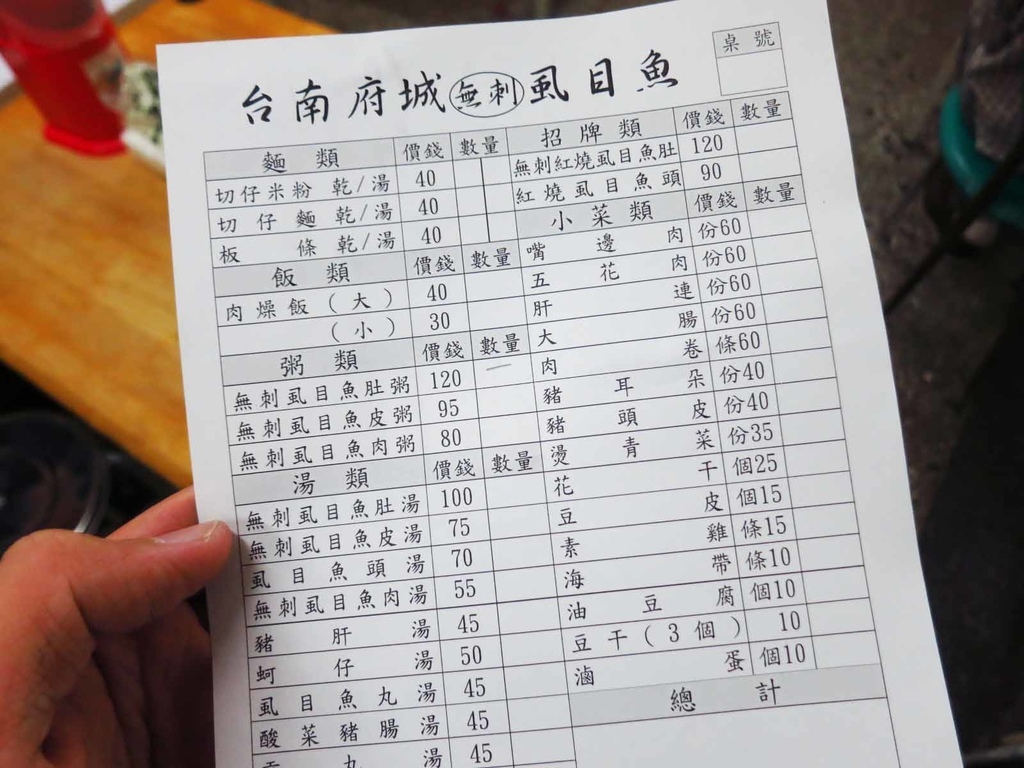 桌號
台南府城無刺虱目魚
麵類 價錢 數量
切仔米粉 乾/湯 40
切仔麵 乾/湯 40
板條 乾/湯 40
飯類 價錢 數量
肉燥飯(大) 40
(小) 30
粥類 價錢 數量
無刺虱目魚肚粥 120
無刺虱目魚皮粥 95
無刺虱目魚肉粥 80
湯類 價錢 數量
無刺虱目魚肚湯 100
無刺虱目魚皮湯 75
虱目魚頭湯 70
無刺虱目魚肉湯 55
豬肝湯 45
蚵仔湯 50
虱目魚丸湯 45
酸菜豬腸湯 45
丸湯 45
招牌類 價錢 數量
無刺紅燒虱目魚肚 120
紅燒虱目魚頭 90
小菜類 價錢 數量
嘴邊肉 份60
五花肉 份60
肝連 份60
大腸 份60
肉卷 條60
豬耳朵 份40
豬頭皮 份40
燙青菜 份35
花干 個25
豆皮 個15
素雞 條15
海帶 條10
油豆腐 個10
豆干(3個) 10
滷蛋 個10
總計